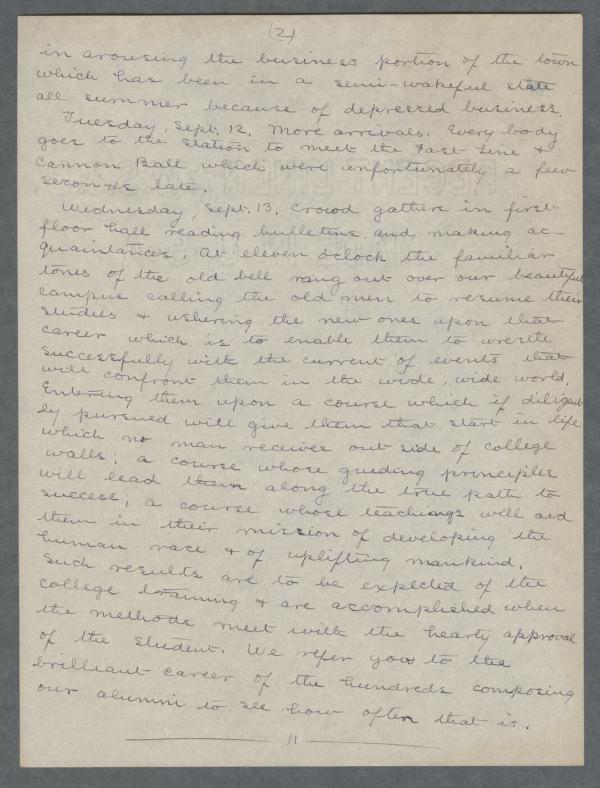 (2)
in arousing the business portion of the town
which has been in a semi-wakeful state
all summer because of depressed business.
Tuesday, Sept. 12. More arrivals. Every body
goes to the station to meet the Fast Line &
Cannon Ball which were unfortunately a few
seconds late.
Wednesday, Sept. 13. Crowd gathers in first
floor hall reading bulletins and making ac-
quaintances. At eleven o'clock the familiar
tones of the old bell rang out over our beautiful
campus calling the old men to resume their
studies & ushering the new ones upon that
career which is to enable them to wrestle
successfully with the current of events that
will confront them in the wide, wide world.
Entering them upon a course which if diligent
ly pursued will give them that start in life
which no man receives out side of college
walls; a course whose guiding principles
will lead them along the true path to
success; a course whose teachings will aid
them in their mission of developing the
human race & of uplifting mankind.
Such results are to be expected of the
college training & are accomplished when
the methods meet with the hearty approval
of the student. We refer you to the
brilliant career of the hundreds composing
our alumni to see how often that is.